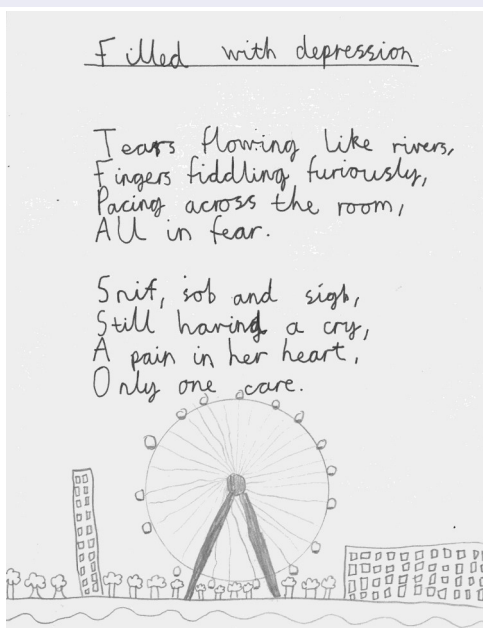 Filled with depression
Tears flowing like rivers,
Fingers fiddling furiously,
Pacing across the room,
All in fear.
Snif, sob and sigh,
Still having a cry,
A pain in her heart,
Only one care.